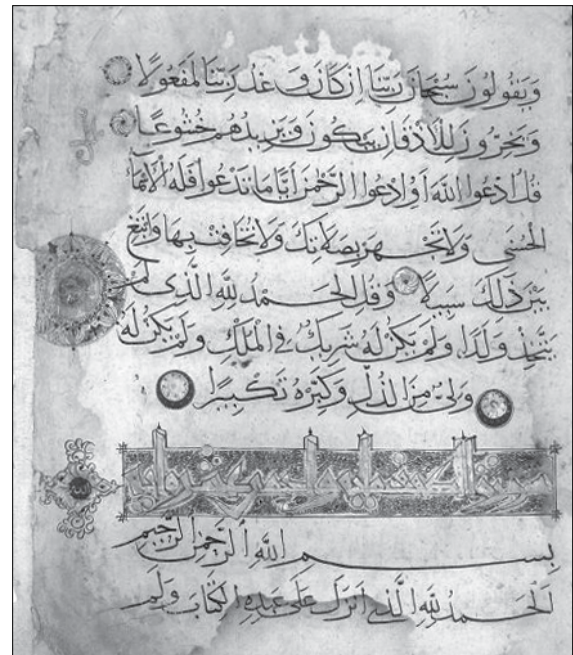 وَيَقُولُونَ سُبْحَانَ رَبِّنَا إِن كَانَ وَعْدُ رَبِّنَا لَمَفْعُولًا
وَيَخِرُّونَ لِلْأَذْقَانِ يَبْكُونَ وَيَزِيدُهُمْ خُشُوعًا
قُلْ ادْعُوا اللَّهَ أَوِ ادْعُوا الرَّحْمَنَ أَيًّا مَا تَدْعُوا فَلَهُ الْأَسْمَاءُ
الْحُسْنَى وَلَا تَجْهَرْ بِصَلَاتِكَ وَلَا تُخَافِتْ بِهَا وَابْتَغِ
بَيْنَ ذَلِكَ سَبِيلًا وَقُلِ الْحَمْدُ لِلَّهِ الَّذِي لَمْ
يَتَّخِذْ وَلَدًا وَلَمْ يَكُنْ لَهُ شَرِيكٌ فِي الْمُلْكِ وَلَمْ يَكُنْ لَهُ
وَلِيٌّ مِنَ الذُّلِّ وَكَبِّرْهُ تَكْبِيرًا
بِسْمِ اللَّهِ الرَّحْمَنِ الرَّحِيمِ
الْحَمْدُ لِلَّهِ الَّذِي أَنْزَلَ عَلَى عَبْدِهِ الْكِتَابَ وَلَمْ